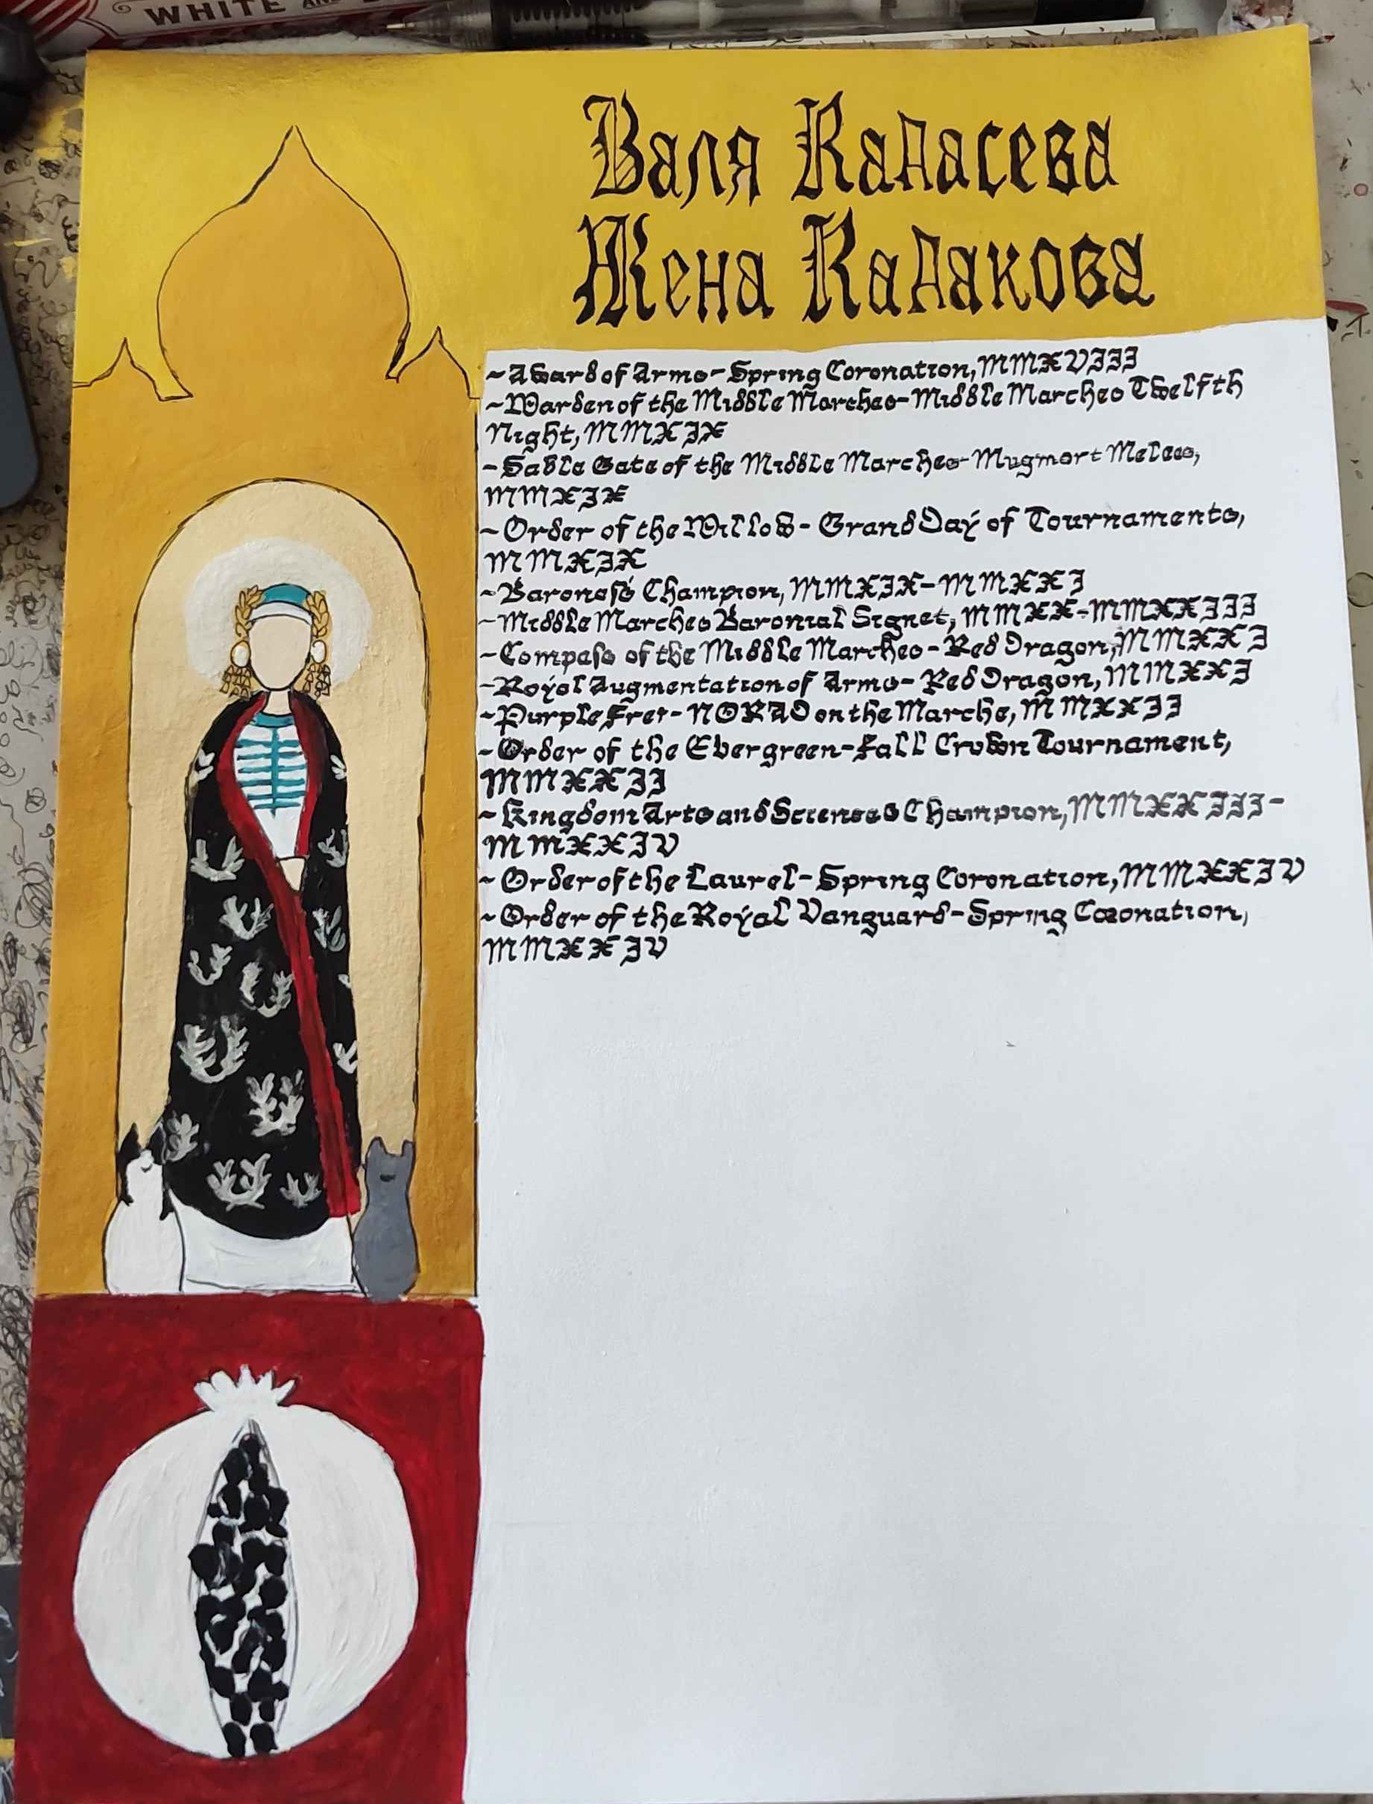 WHITE AND
Валя Кадасева
Жена Кадакова
~Award of Arms-Spring Coronation, MMXVIII
~Warden of the Middle Marches-Middle Marches Twelfth
Night, MMXIX
~Sable Gate of the Middle Marches-Mugmort Melees,
MMXIX
~Order of the Willow-Grand Day of Tournaments,
MMXIX
~Baroness' Champion, MMXIX-MMXXI
~Middle Marches Baronial Signet, MMXX-MMXXIII
~Compass of the Middle Marches-Red Dragon, MMXXI
~Royal Augmentation of Arms-Red Dragon, MMXXI
~Purple Fret-NORAD on the Marche, MMXXII
~Order of the Evergreen-Fall Crown Tournament,
MMXXII
~Kingdom Arts and Sciences Champion, MMXXIII-
MMXXIV
~Order of the Laurel-Spring Coronation, MMXXIV
~Order of the Royal Vanguard-Spring Coronation,
MMXXIV